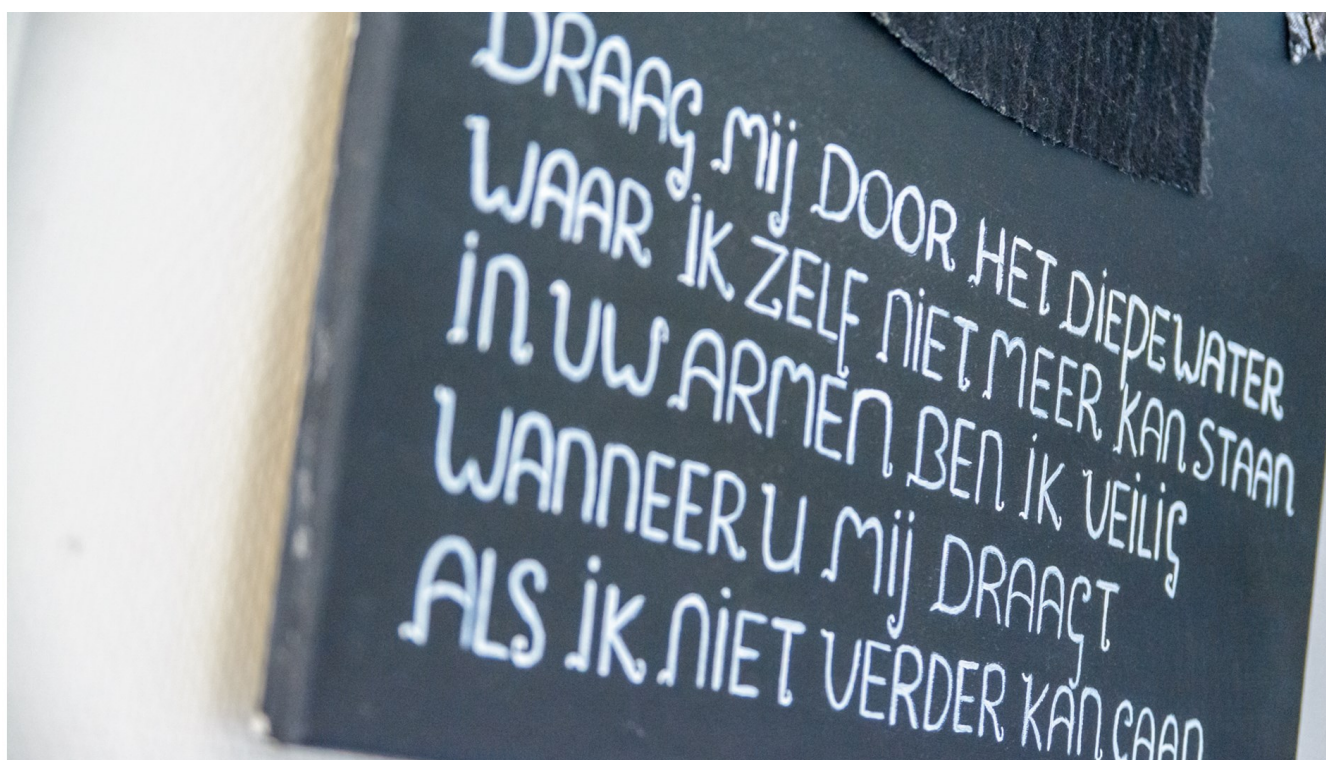 DRAAG Mij DOOR HET DiEPE WATER
WAAR iK ZELF NiET MEER KAN STAAN
iN UW ARMEN BEN iK VEiLiG
WANNEER U Mij DRAAGT
ALS iK NiET VERDER KAN GAAN